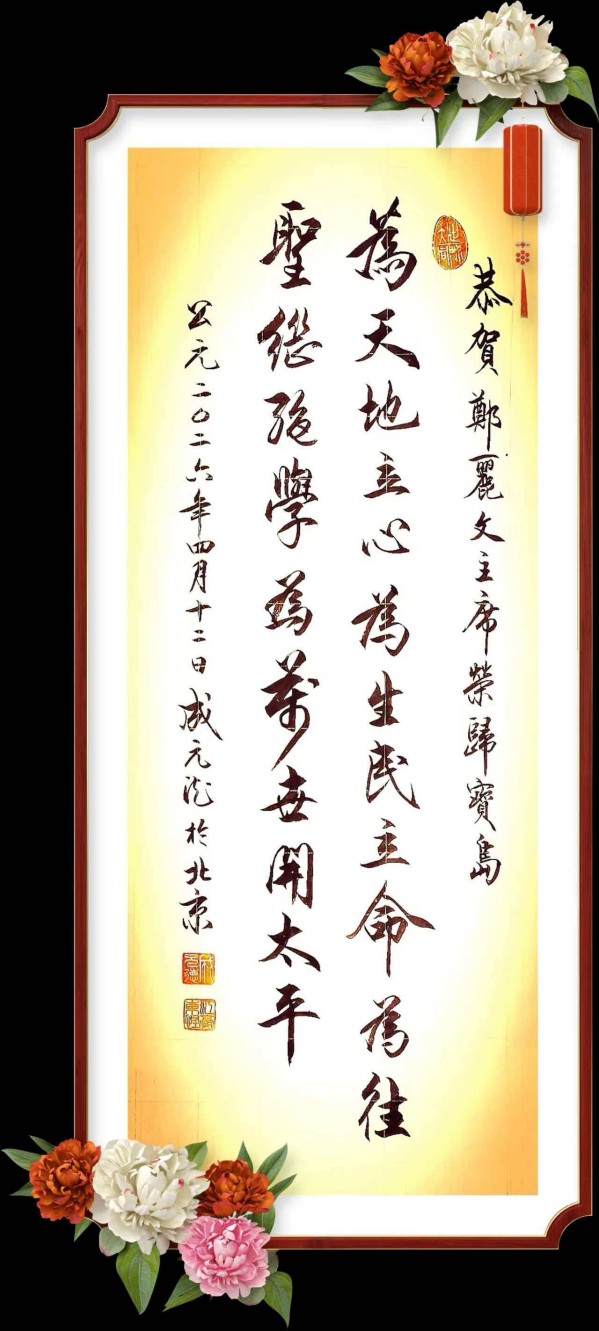 恭賀鄭麗文主席榮歸寶島
為天地立心為生民立命為往
聖繼絕學為萬世開太平
公元二〇二六年四月十二日成元德於北京